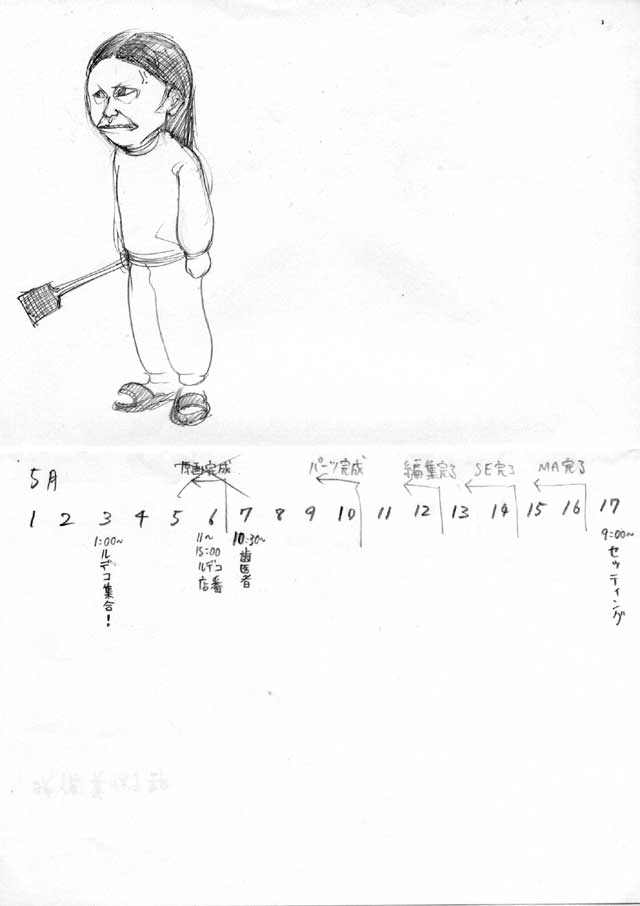 5月
原画完成 パーツ完成 編集完了 SE完了 MA完了
1 2 3 4 5 6 7 8 9 10 11 12 13 14 15 16 17
1:00~ ルデコ集合!
11~15:00 ルデコ店番
10:30~ 歯医者
9:00~ セッティング